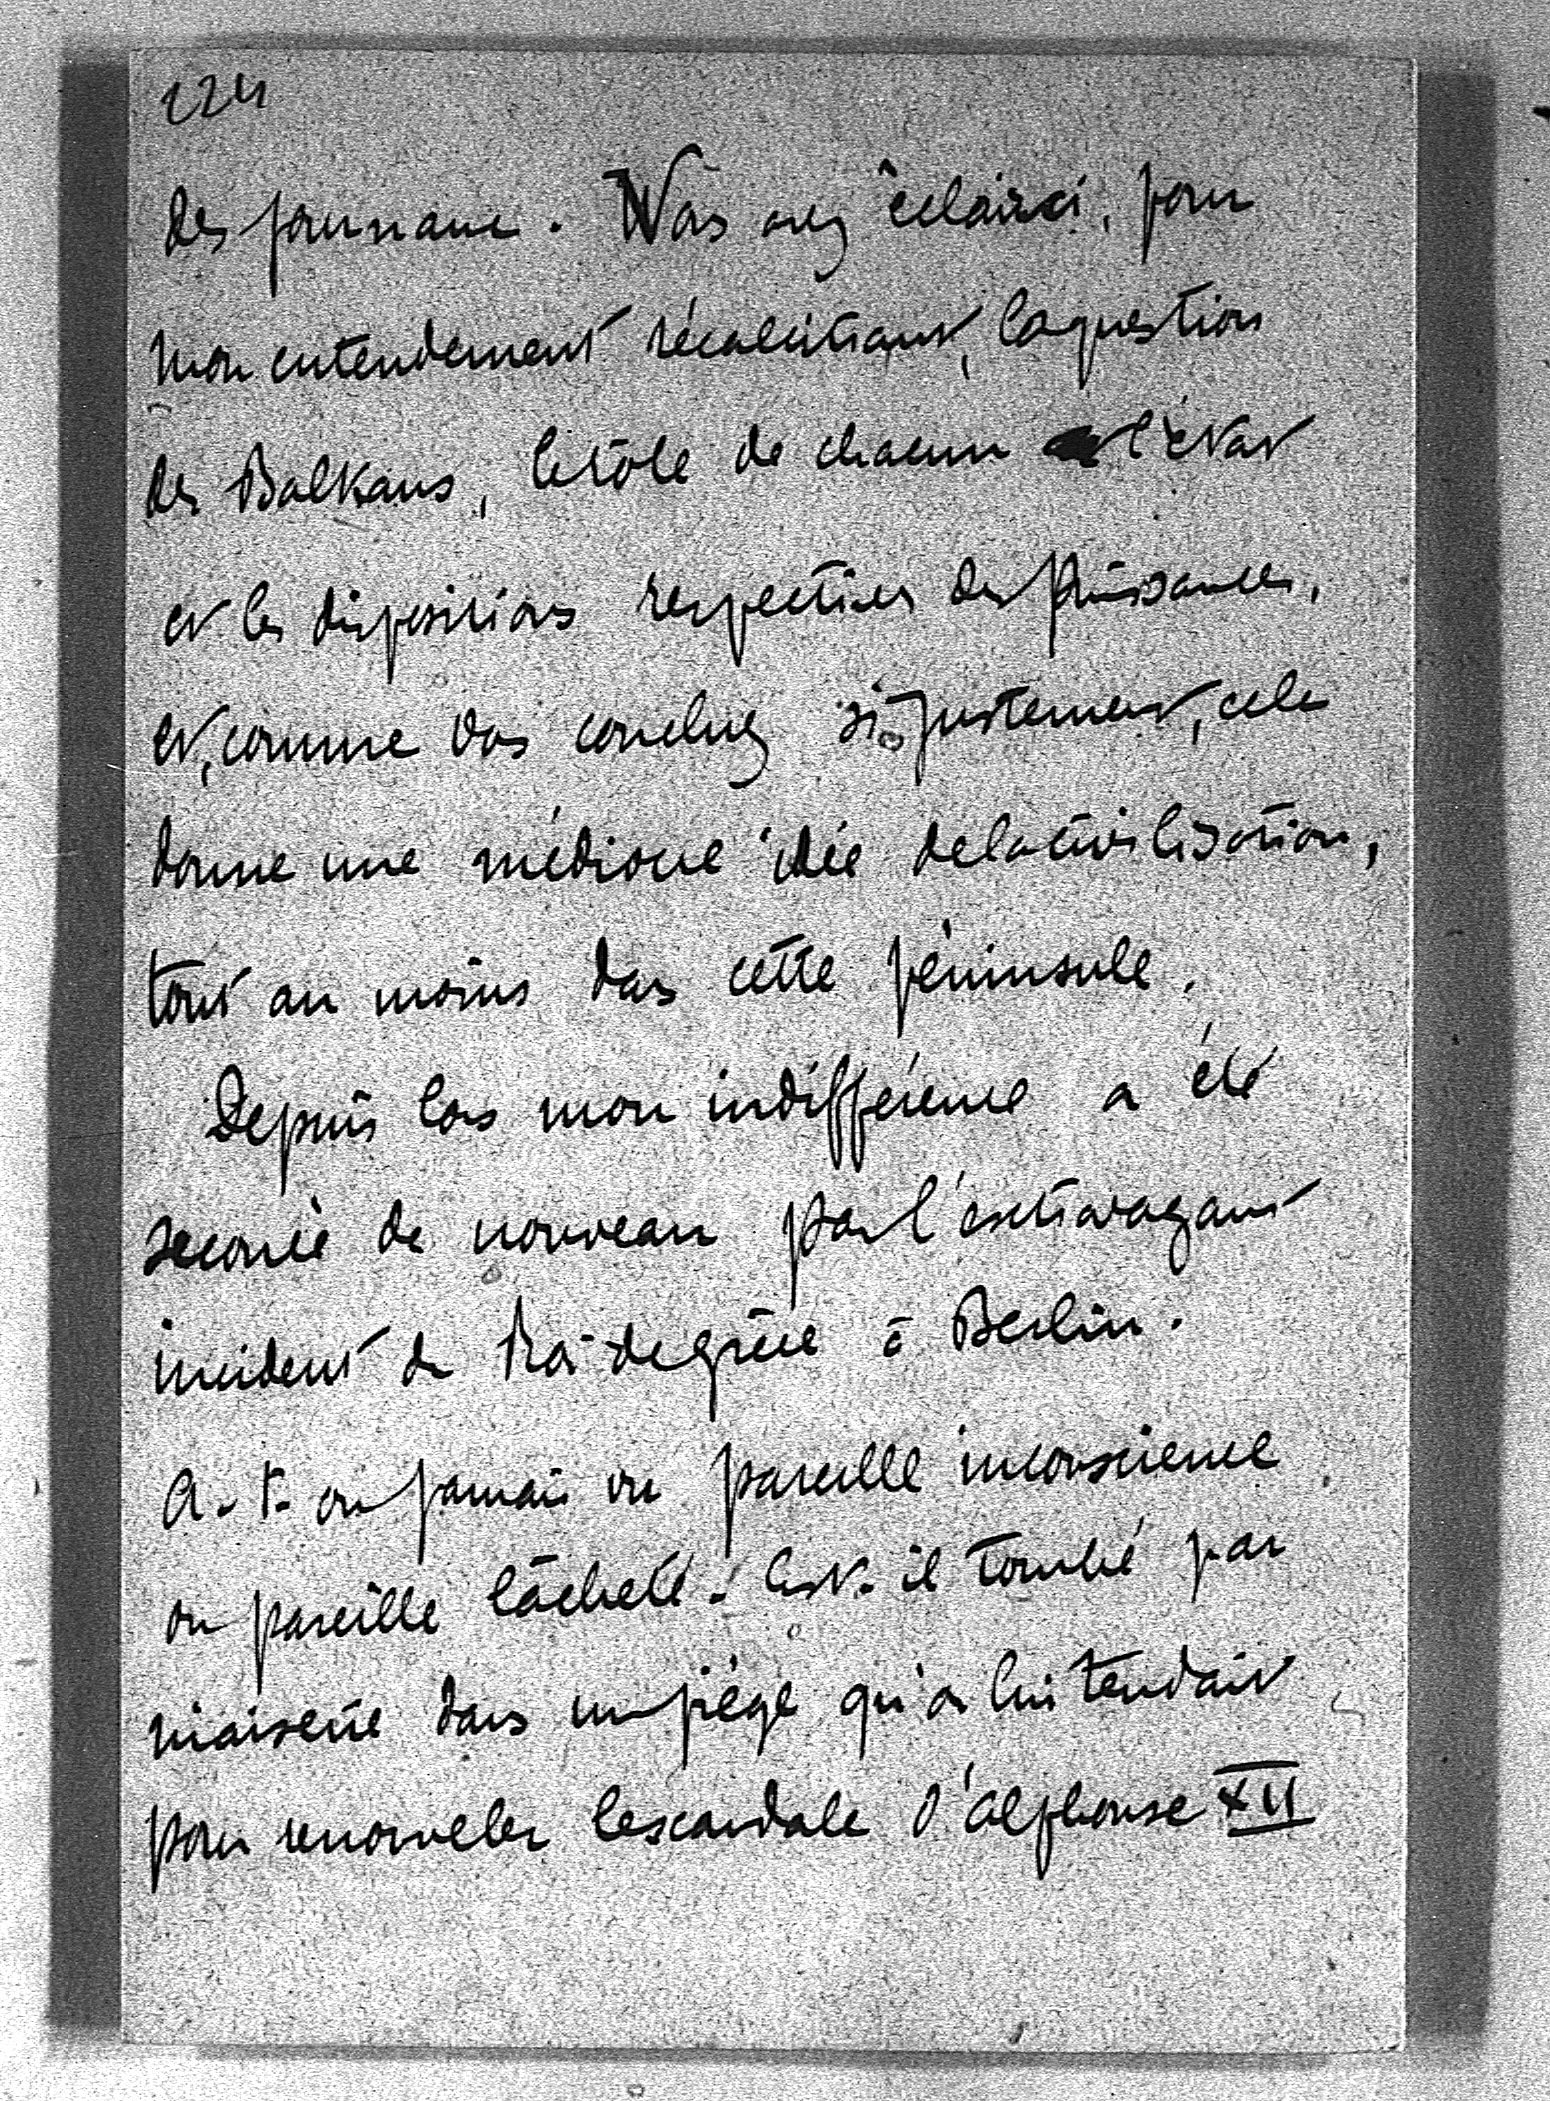 224
des journaux. Vous avez éclairci, pour
mon entendement récalcitrant, la question
des Balkans, le rôle de chacun l'état
et les dispositions respectives des Puissances,
et, comme vous concluez si justement, cela
donne une médiocre idée de la civilisation,
tout au moins dans cette péninsule.
Depuis lors mon indifférence a été
secouée de nouveau par l'extravagant
incident du Roi de grèce à Berlin.
A-t-on jamais vu pareille inconscience
ou pareille lâcheté. Est-il tombé par
niaiserie dans un piége qu'on lui tendait
pour renouveler le scandale d'Alphonse XII